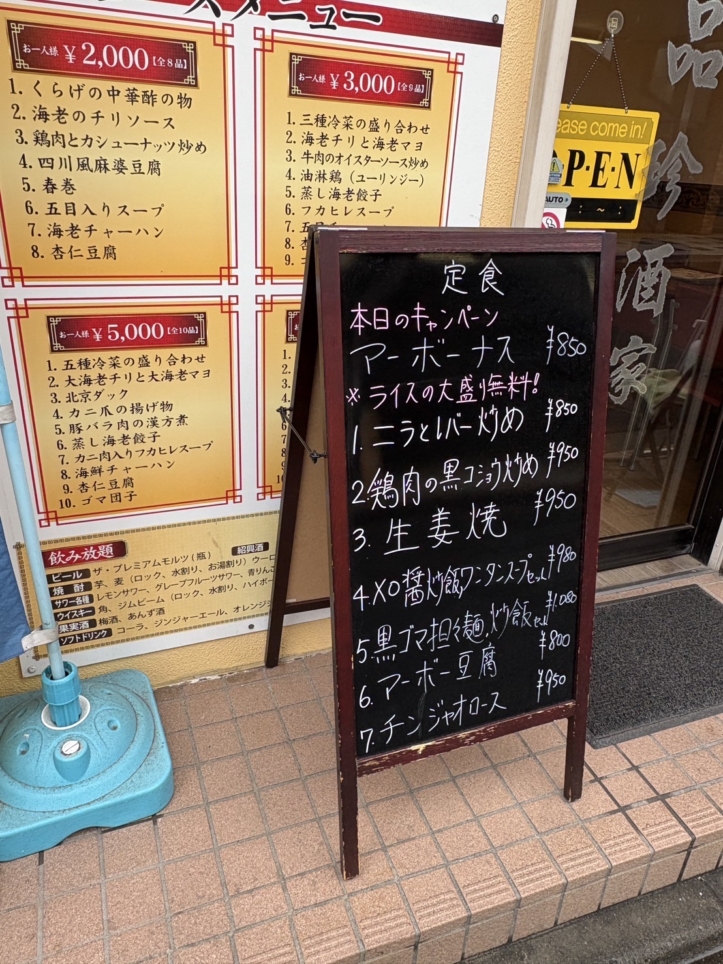 スメニュー
お一人様 ¥2,000【全8品】
1. くらげの中華酢の物
2. 海老のチリソース
3. 鶏肉とカシューナッツ炒め
4. 四川風麻婆豆腐
5. 春巻
6. 五目入りスープ
7. 海老チャーハン
8. 杏仁豆腐
お一人様 ¥3,000【全9品】
1. 三種冷菜の盛り合わせ
2. 海老チリと海老マヨ
3. 牛肉のオイスターソース炒め
4. 油淋鶏（ユーリンジー）
5. 蒸し海老餃子
6. フカヒレスープ
お一人様 ¥5,000【全10品】
1. 五種冷菜の盛り合わせ
2. 大海老チリと大海老マヨ
3. 北京ダック
4. カニ爪の揚げ物
5. 豚バラ肉の漢方煮
6. 蒸し海老餃子
7. カニ肉入りフカヒレスープ
8. 海鮮チャーハン
9. 杏仁豆腐
10. ゴマ団子
飲み放題
ビール ザ・プレミアムモルツ(瓶) 紹興酒
焼酎 芋、麦（ロック、水割り、お湯割り）ウーロ
サワー各種 レモンサワー、グレープフルーツサワー、青りん
ウイスキー 角、ジムビーム（ロック、水割り、ハイボー
果実酒 梅酒、あんず酒
ソフトドリンク コーラ、ジンジャーエール、オレンジ
定食
本日のキャンペーン
アーボーナス ¥850
※ライスの大盛り無料!
1. ニラとレバー炒め ¥850
2. 鶏肉の黒コショウ炒め ¥950
3. 生姜焼 ¥950
4. XO醤炒飯,ワンタンスープセット ¥980
5. 黒ゴマ担々麺,炒飯セット ¥1.080
6. マーボー豆腐 ¥800
7. チンジャオロース ¥950
ease come in!
O·P·E·N
AUTO
品珍酒家